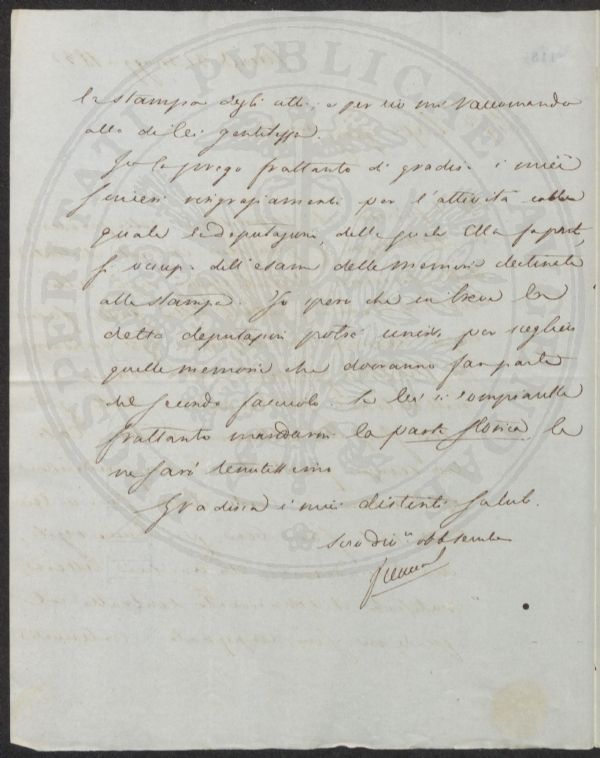 la stampa degli atti, e per ciò mi raccomando
alla di lei gentilezza.
Io la prego frattanto di gradire i miei
sinceri ringraziamenti per l'attività colla
quale la deputazione, della quale Ella fa parte,
si occupa dell'esame delle memorie destinate
alla stampa. Io spero che in breve la
detta deputazione potrà unirsi per scegliere
quelle memorie che dovranno far parte
del secondo fascicolo. Se lei si compiacerà
frattanto mandarmi la parte storica le
ne sarò tenutissimo
Gradisca i miei distinti saluti.
Suo obb servitore
PROSPERITATI PUBLICAE AUGENDAE